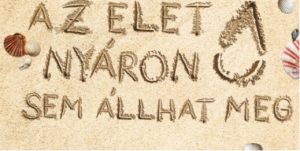 AZ ELET
NYÁRON
SEM ÁLLHAT MEG